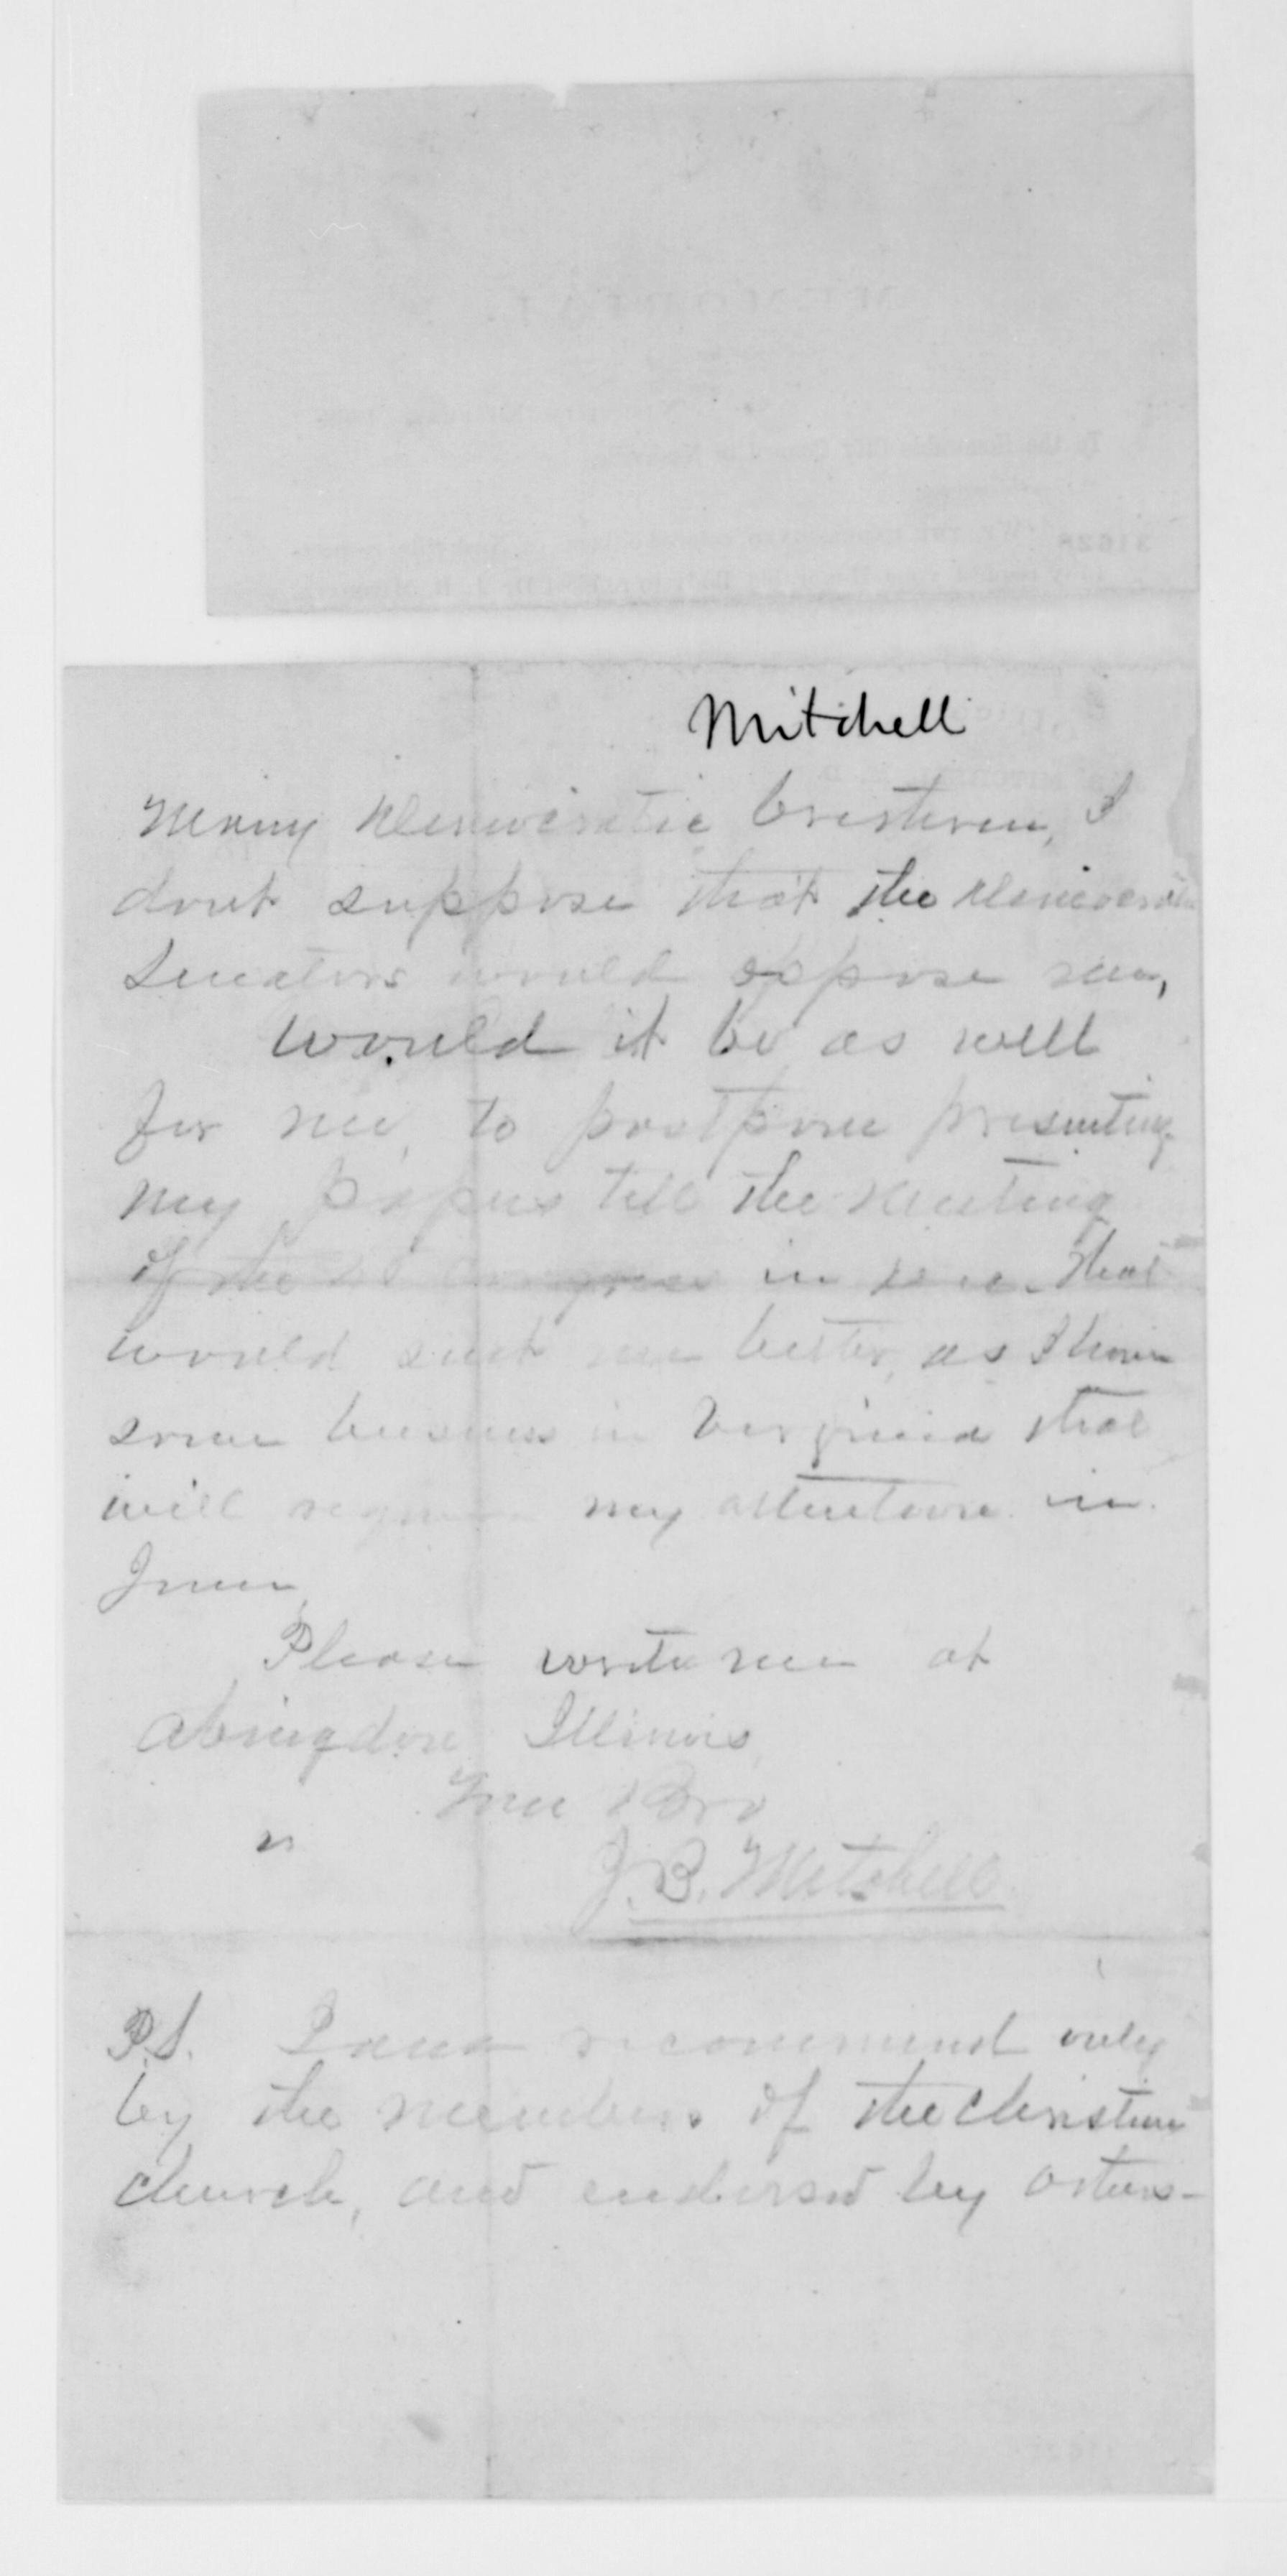 Mitchell
Many Democratic bretheren, I
dont suppose that the Democratic
Senators would oppose me,
would it be as well
for me, to postpone presenting
my papers till the meeting
of the Congress in Dec. that
would suit me better, as I have
some business in Virginia that
will require my attention in
June,
Please write me at
Abingdon Illinois,
Your Bro
J. B. Mitchell
P.S. recommend only
by the members of the Christian
church, and endorsed by others-